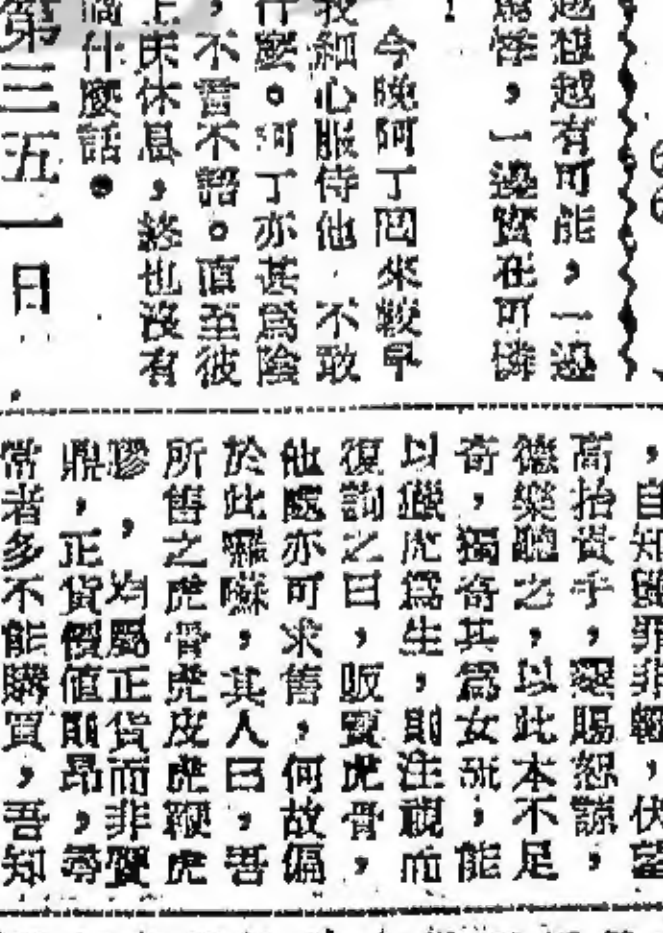 越想越有可能，一邊
爲怪，一邊實在可憐
！
今晚阿丁回來較早
我細心服侍他，不敢
什麼。阿丁亦甚爲陰
，不言不語。直至彼
上床休息，終也沒有
個什麼話。
第三五一日
，自知雖罪非輕，伏望
高抬貴手，還賜恕諒，
德樂聽之，以此本不足
奇，獨奇其爲女流，能
以獵虎爲生，則注視而
復詢之曰，販賣虎骨，
他處亦可求售，何故偏
於此囉囌，其人曰，吾
所售之虎骨虎皮虎鞭虎
膠，均屬正貨而非贋
鼎，正貨價值則昂，尋
常者多不能購買，吾知